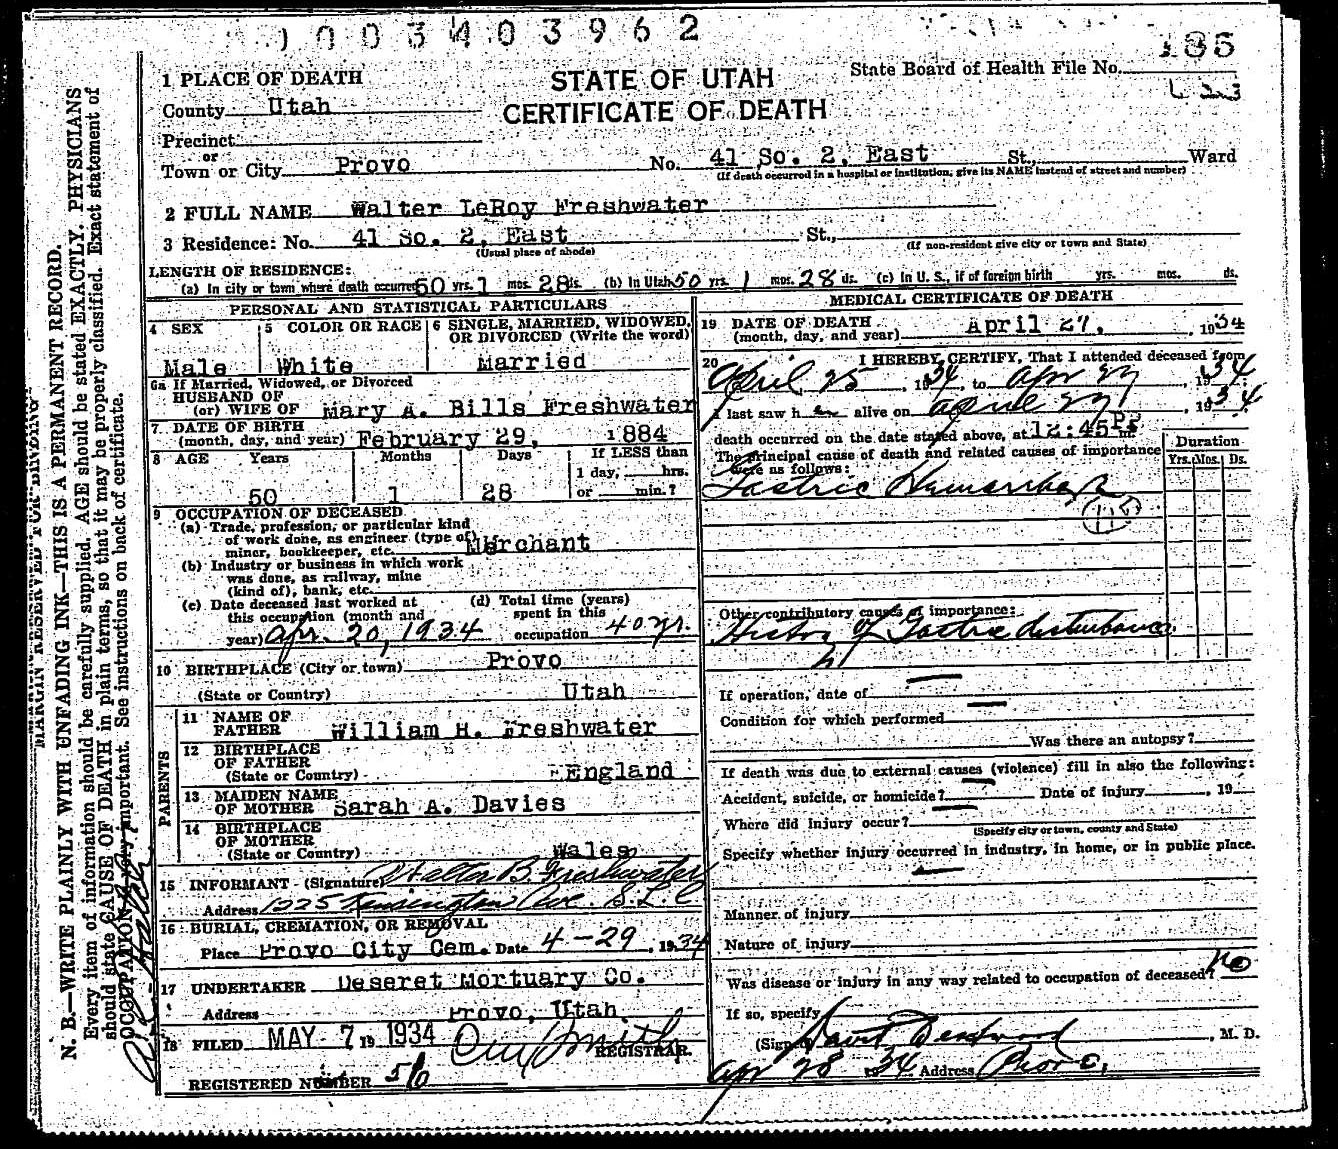 1003403962
185
1 PLACE OF DEATH
STATE OF UTAH
State Board of Health File No.
County Utah
CERTIFICATE OF DEATH
Precinct
or
Town or City Provo No. 41 So. 2, East St., Ward
(If death occurred in a hospital or institution, give its NAME instead of street and number)
2 FULL NAME Walter LeRoy Freshwater
3 Residence: No. 41 So. 2, East St.,
(Usual place of abode) (If non-resident give city or town and State)
LENGTH OF RESIDENCE:
(a) In city or town where death occurred 50 yrs. 1 mos. 28 ds. (b) In Utah 50 yrs. 1 mos. 28 ds. (c) In U. S., if of foreign birth yrs. mos. ds.
PERSONAL AND STATISTICAL PARTICULARS
4 SEX 5 COLOR OR RACE 6 SINGLE, MARRIED, WIDOWED,
OR DIVORCED (Write the word)
Male White Married
6a If Married, Widowed, or Divorced
HUSBAND OF
(or) WIFE OF Mary A. Bills Freshwater
7. DATE OF BIRTH
(month, day, and year) February 29, 1884
8 AGE Years Months Days If LESS than
1 day, hrs.
50 1 28 or min.?
9 OCCUPATION OF DECEASED
(a) Trade, profession, or particular kind
of work done, as engineer (type of)
miner, bookkeeper, etc. Merchant
(b) Industry or business in which work
was done, as railway, mine
(kind of), bank, etc.
(c) Date deceased last worked at (d) Total time (years)
this occupation (month and spent in this
year) Apr. 20, 1934 occupation 40 yr.
10 BIRTHPLACE (City or town) Provo
(State or Country) Utah
PARENTS
11 NAME OF
FATHER William H. Freshwater
12 BIRTHPLACE
OF FATHER
(State or Country) England
13 MAIDEN NAME
OF MOTHER Sarah A. Davies
14 BIRTHPLACE
OF MOTHER
(State or Country) Wales
15 INFORMANT (Signature) Walter B. Freshwater
Address 1225 Kensington Ave. S.L.C
16 BURIAL, CREMATION, OR REMOVAL
Place Provo City Cem. Date 4-29, 1934
17 UNDERTAKER Deseret Mortuary Co.
Address Provo, Utah
18 FILED MAY - 7 19 1934
REGISTRAR.
REGISTERED NUMBER 56
MEDICAL CERTIFICATE OF DEATH
19 DATE OF DEATH
(month, day, and year) April 27, 1934
20 I HEREBY CERTIFY, That I attended deceased from
April 25, 1934, to Apr 27, 1934
I last saw h alive on April 27, 1934
death occurred on the date stated above, at 12:45 P m.
The principal cause of death and related causes of importance
were as follows:
Duration
Yrs. Mos. Ds.
Gastric Hemorrhage
Other contributory causes of importance:
History of Gastric disturbance
If operation, date of
Condition for which performed
Was there an autopsy?
If death was due to external causes (violence) fill in also the following:
Accident, suicide, or homicide? Date of injury , 19
Where did injury occur?
(Specify city or town, county and State)
Specify whether injury occurred in industry, in home, or in public place.
Manner of injury
Nature of injury
Was disease or injury in any way related to occupation of deceased? No
If so, specify
M. D.
Apr 28 1934 Address Provo,
MARGIN RESERVED FOR BINDING
N. B.—WRITE PLAINLY WITH UNFADING INK—THIS IS A PERMANENT RECORD.
Every item of information should be carefully supplied. AGE should be stated EXACTLY. PHYSICIANS
should state CAUSE OF DEATH in plain terms, so that it may be properly classified. Exact statement of
OCCUPATION is very important. See instructions on back of certificate.